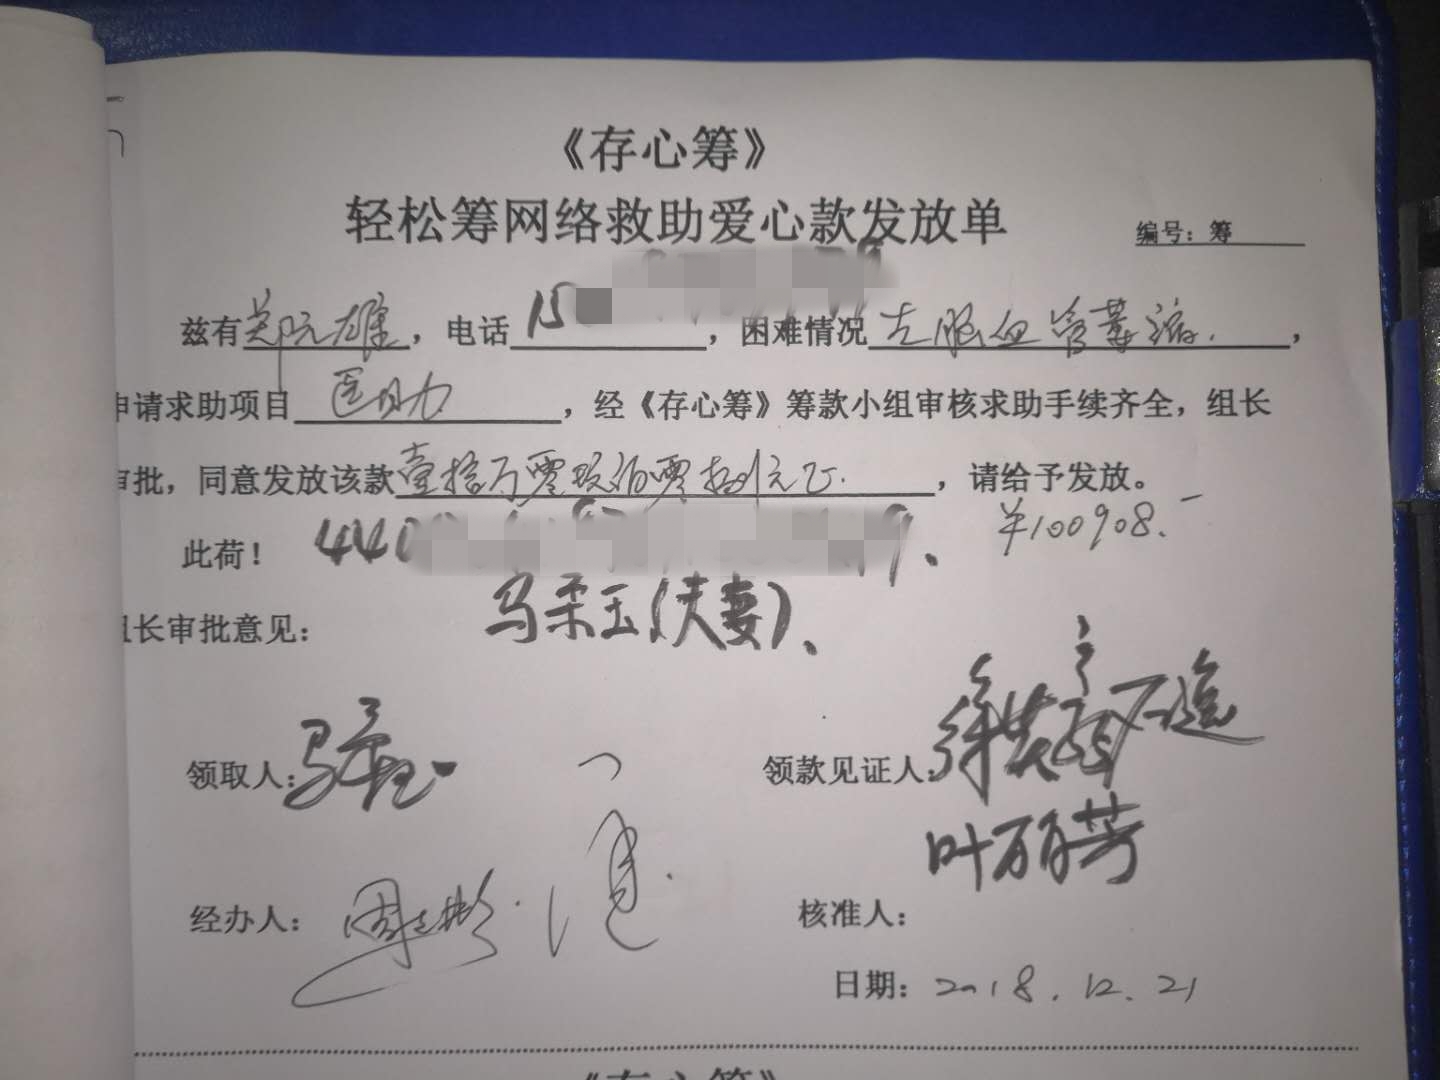 《存心筹》
轻松筹网络救助爱心款发放单
编号：筹
兹有郑阮雄，电话15，困难情况左脑血管萎缩，
申请求助项目医助，经《存心筹》筹款小组审核求助手续齐全，组长
审批，同意发放该款壹拾万零玖佰零捌元正，请给予发放。
￥100908.-
此荷！ 440 9.
组长审批意见：
马柔玉(夫妻)、
领取人：马柔玉
领款见证人：
叶丽芳
经办人：周
核准人：
日期：2018.12.21
《存心筹》